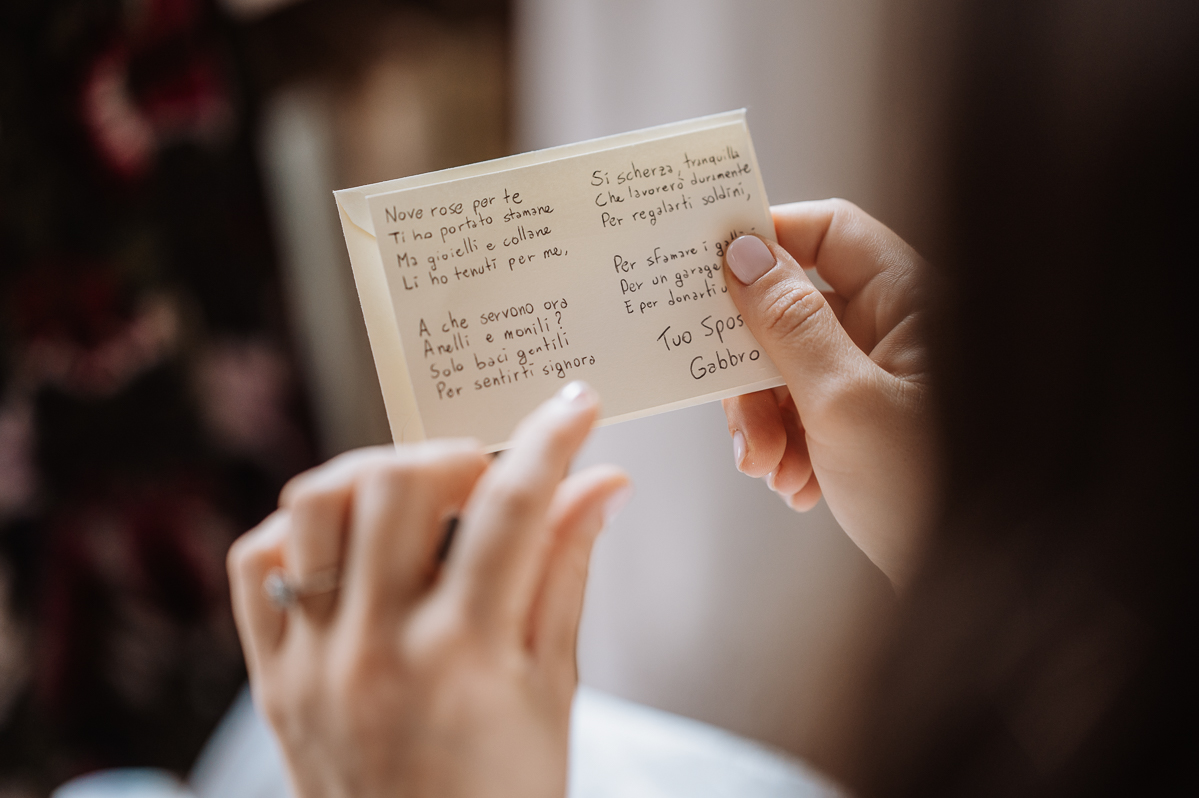 Nove rose per te
Ti ho portato stamane
Ma gioielli e collane
Li ho tenuti per me,
A che servono ora
Anelli e monili?
Solo baci gentili
Per sentirti signora
Si scherza, tranquilla
Che lavorerò duramente
Per regalarti soldini,
Per sfamare i
Per un garage
E per donarti
Tuo
Gabbro